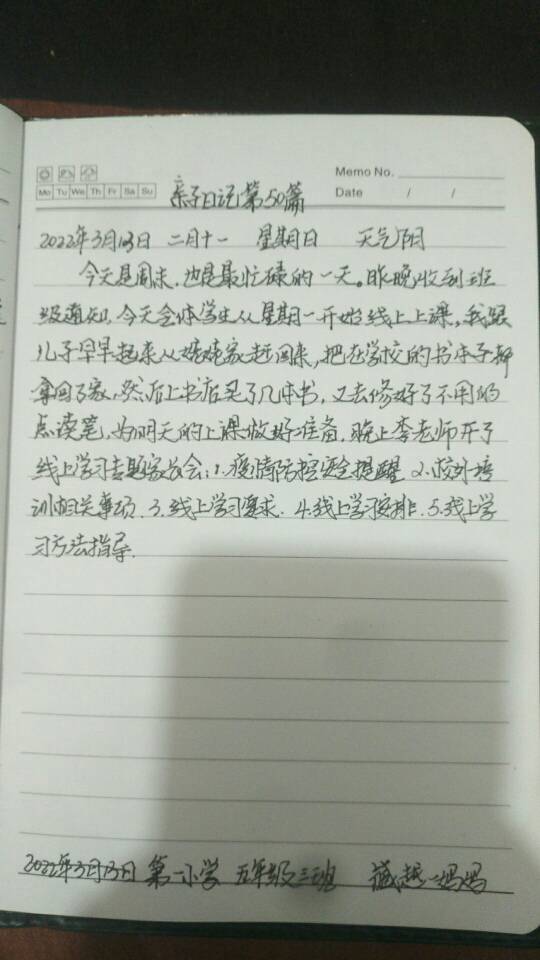 Memo No.
Mo Tu We Th Fr Sa Su
Date / /
亲子日记第50篇
2022年3月13日 二月十一 星期日 天气阴
今天是周末,也是最忙碌的一天。昨晚收到班
级通知,今天全体学生从星期一开始线上上课,我跟
儿子早早起来从姥姥家赶回来,把在学校的书本子都
拿回了家,然后上书店买了几本书,又去修好了不用的
点读笔,为明天的上课做好准备,晚上李老师开了
线上学习专题家长会:1.疫情防控安全提醒 2.校外培
训相关事项.3.线上学习要求.4.线上学习安排.5.线上学
习方法指导.
2022年3月13日 第一小学 五年级三班 臧越一妈妈